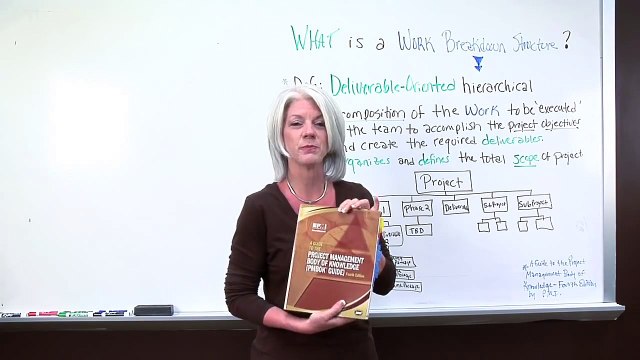 WHAT is a Work Breakdown Structure?
Deliverable-Oriented hierarchical
composition of the work to be 'executed'
the team to accomplish the project objectives
and create the required deliverables.
organizes and defines the total scope of project
Project
1
Phase 2
SubProject
TBD
* A Guide to the Project
Management Body of
Knowledge - Fourth Edition
by P.M.I.
A GUIDE
TO THE
PROJECT MANAGEMENT
BODY OF KNOWLEDGE
(PMBOK® GUIDE) Fourth Edition